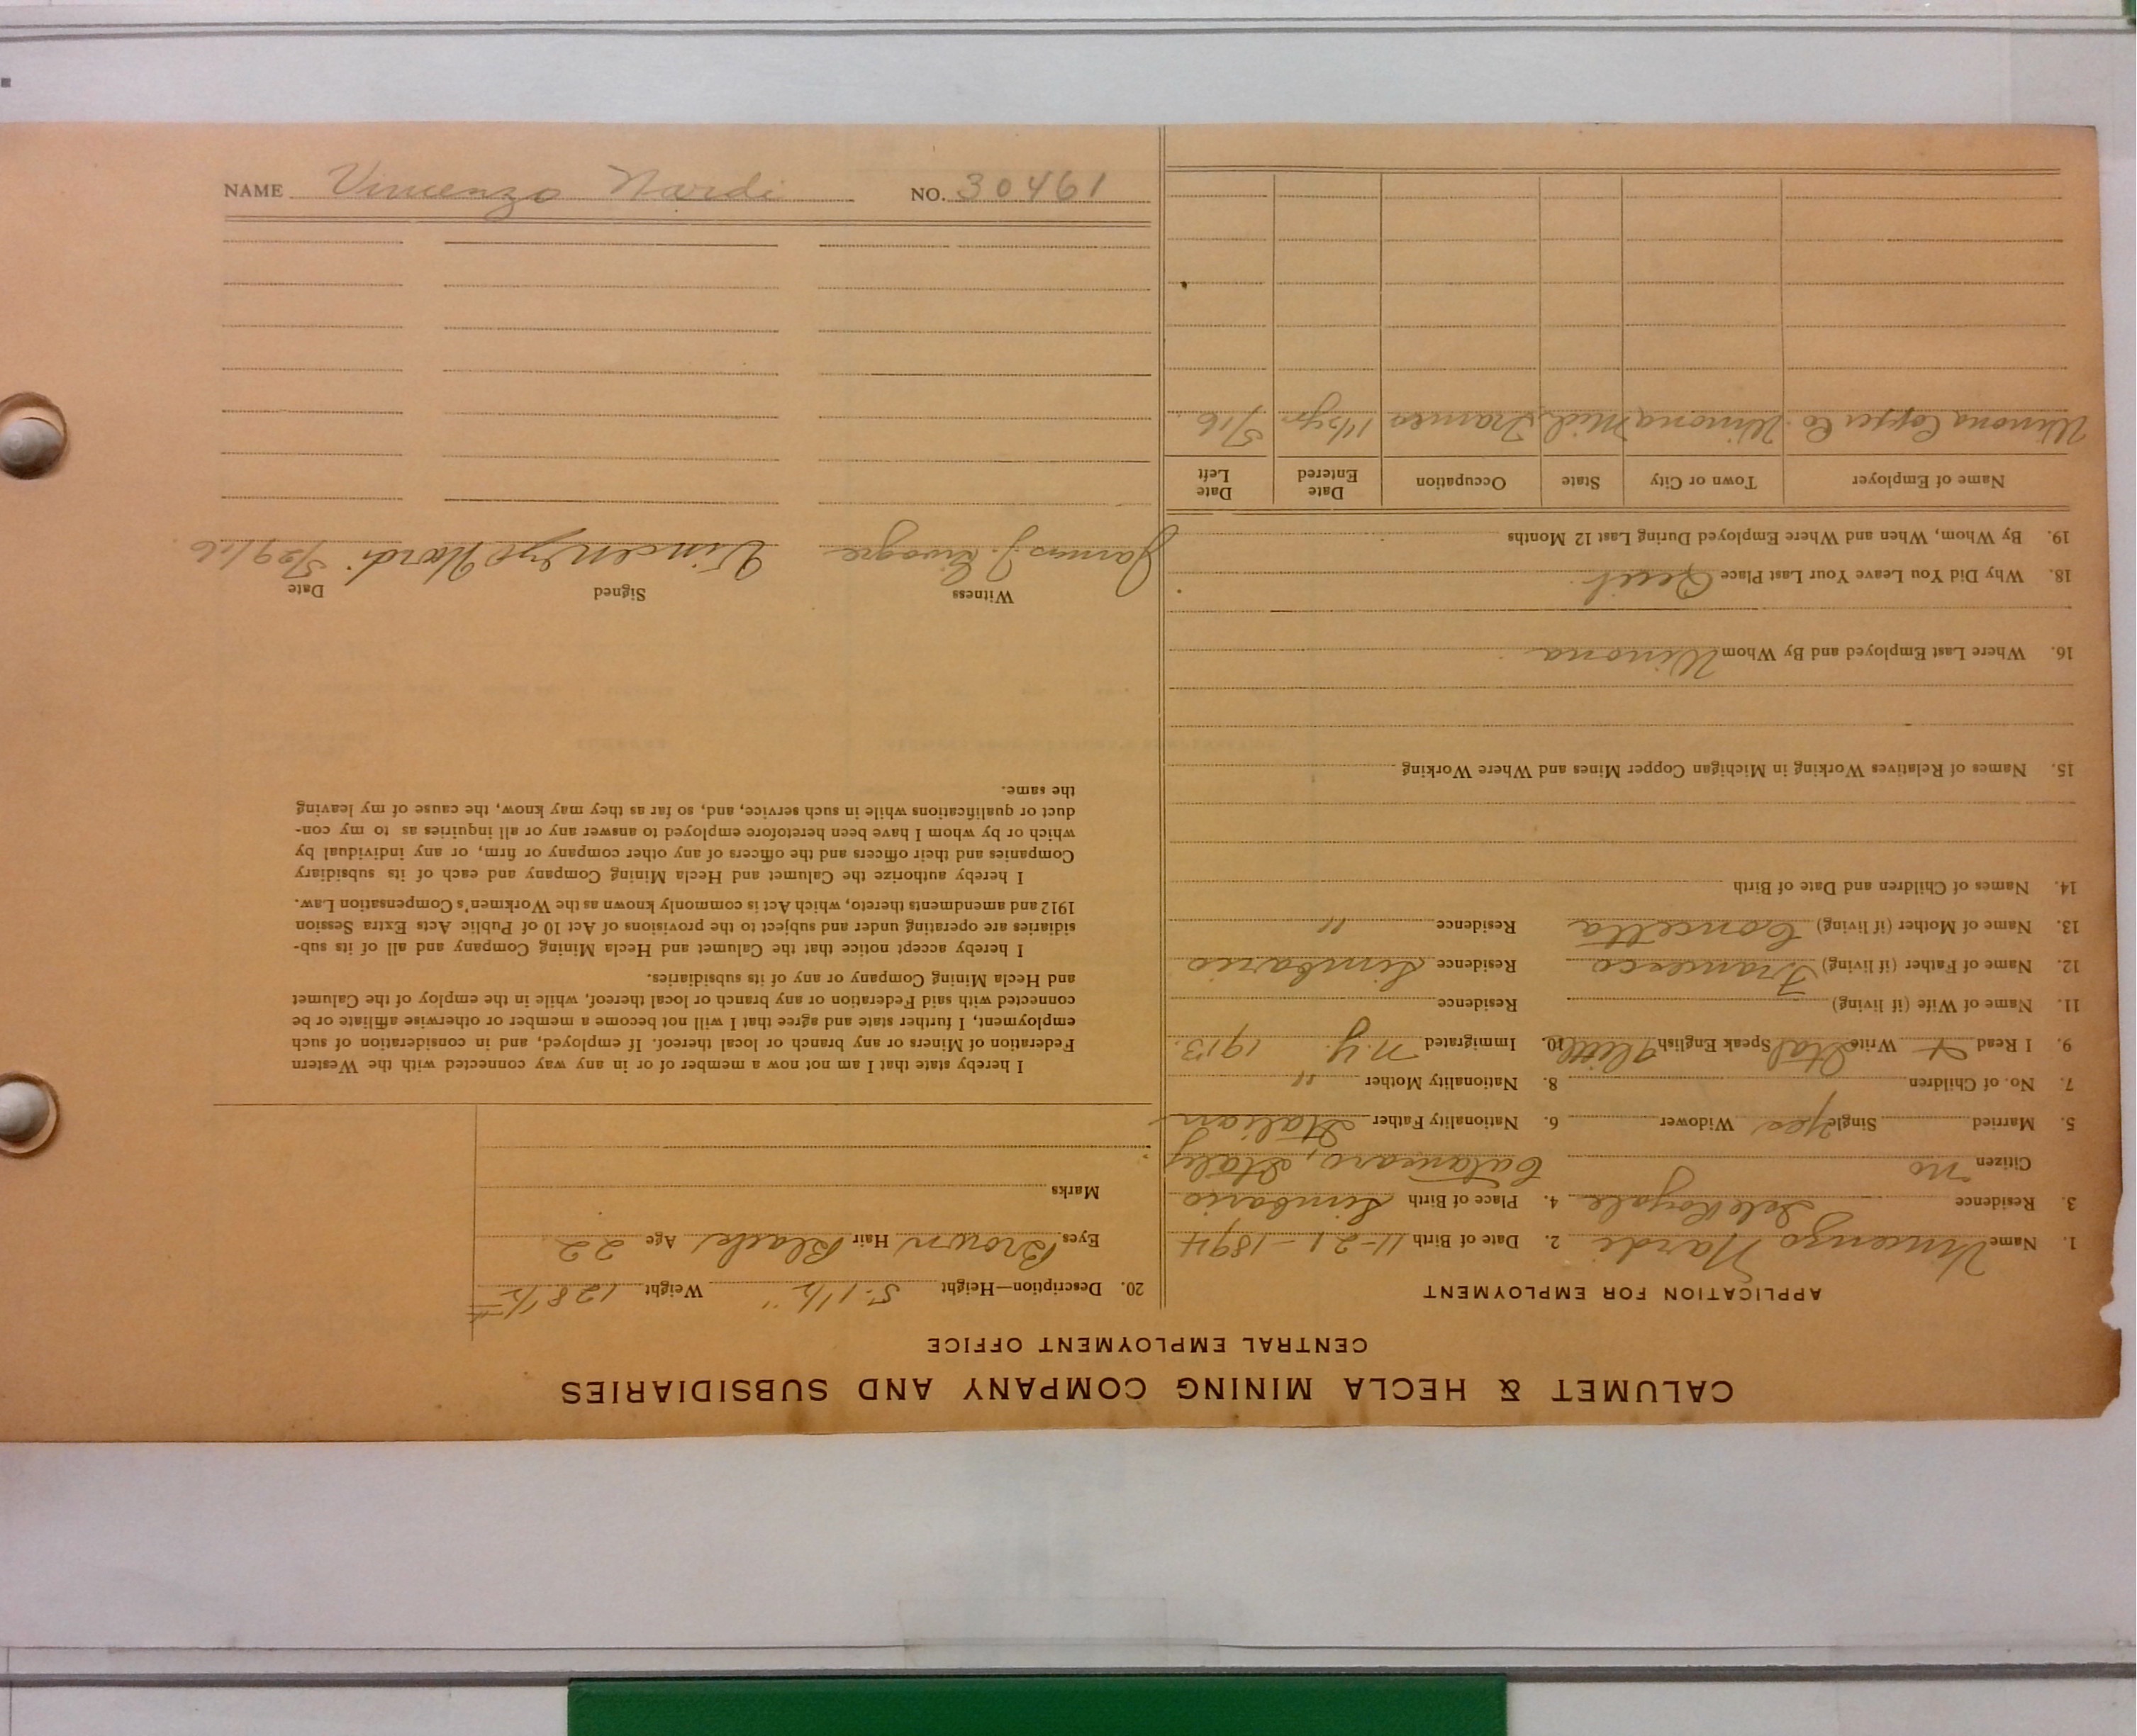 CALUMET & HECLA MINING COMPANY AND SUBSIDIARIES
CENTRAL EMPLOYMENT OFFICE
APPLICATION FOR EMPLOYMENT
1. Name Vincenzo Nardi 2. Date of Birth 11-21-1894
3. Residence Isle Royale 4. Place of Birth Simbario
Citizen no Catanzaro, Italy
5. Married Single yes Widower 6. Nationality Father Italian
7. No. of Children 8. Nationality Mother "
9. I Read + Write Ital Speak English little 10. Immigrated N.Y. 1913.
11. Name of Wife (if living) Residence
12. Name of Father (if living) Francesco Residence Simbario
13. Name of Mother (if living) Concetta Residence "
14. Names of Children and Date of Birth
15. Names of Relatives Working in Michigan Copper Mines and Where Working
16. Where Last Employed and By Whom Winona
18. Why Did You Leave Your Last Place Quit
19. By Whom, When and Where Employed During Last 12 Months
Name of Employer Town or City State Occupation Date Entered Date Left
Winona Copper Co. Winona Mich. Tramer 1 1/2 yr 5/16
20. Description—Height 5. 1 1/2" Weight 128 1/2 #
Eyes Brown Hair Black Age 22
Marks
I hereby state that I am not now a member of or in any way connected with the Western
Federation of Miners or any branch or local thereof. If employed, and in consideration of such
employment, I further state and agree that I will not become a member or otherwise affiliate or be
connected with said Federation or any branch or local thereof, while in the employ of the Calumet
and Hecla Mining Company or any of its subsidiaries.
I hereby accept notice that the Calumet and Hecla Mining Company and all of its sub-
sidiaries are operating under and subject to the provisions of Act 10 of Public Acts Extra Session
1912 and amendments thereto, which Act is commonly known as the Workmen's Compensation Law.
I hereby authorize the Calumet and Hecla Mining Company and each of its subsidiary
Companies and their officers and the officers of any other company or firm, or any individual by
which or by whom I have been heretofore employed to answer any or all inquiries as to my con-
duct or qualifications while in such service, and, so far as they may know, the cause of my leaving
the same.
Witness Signed Date
James J. Vincenzo Nardi 5/29/16
NAME Vincenzo Nardi NO. 30461